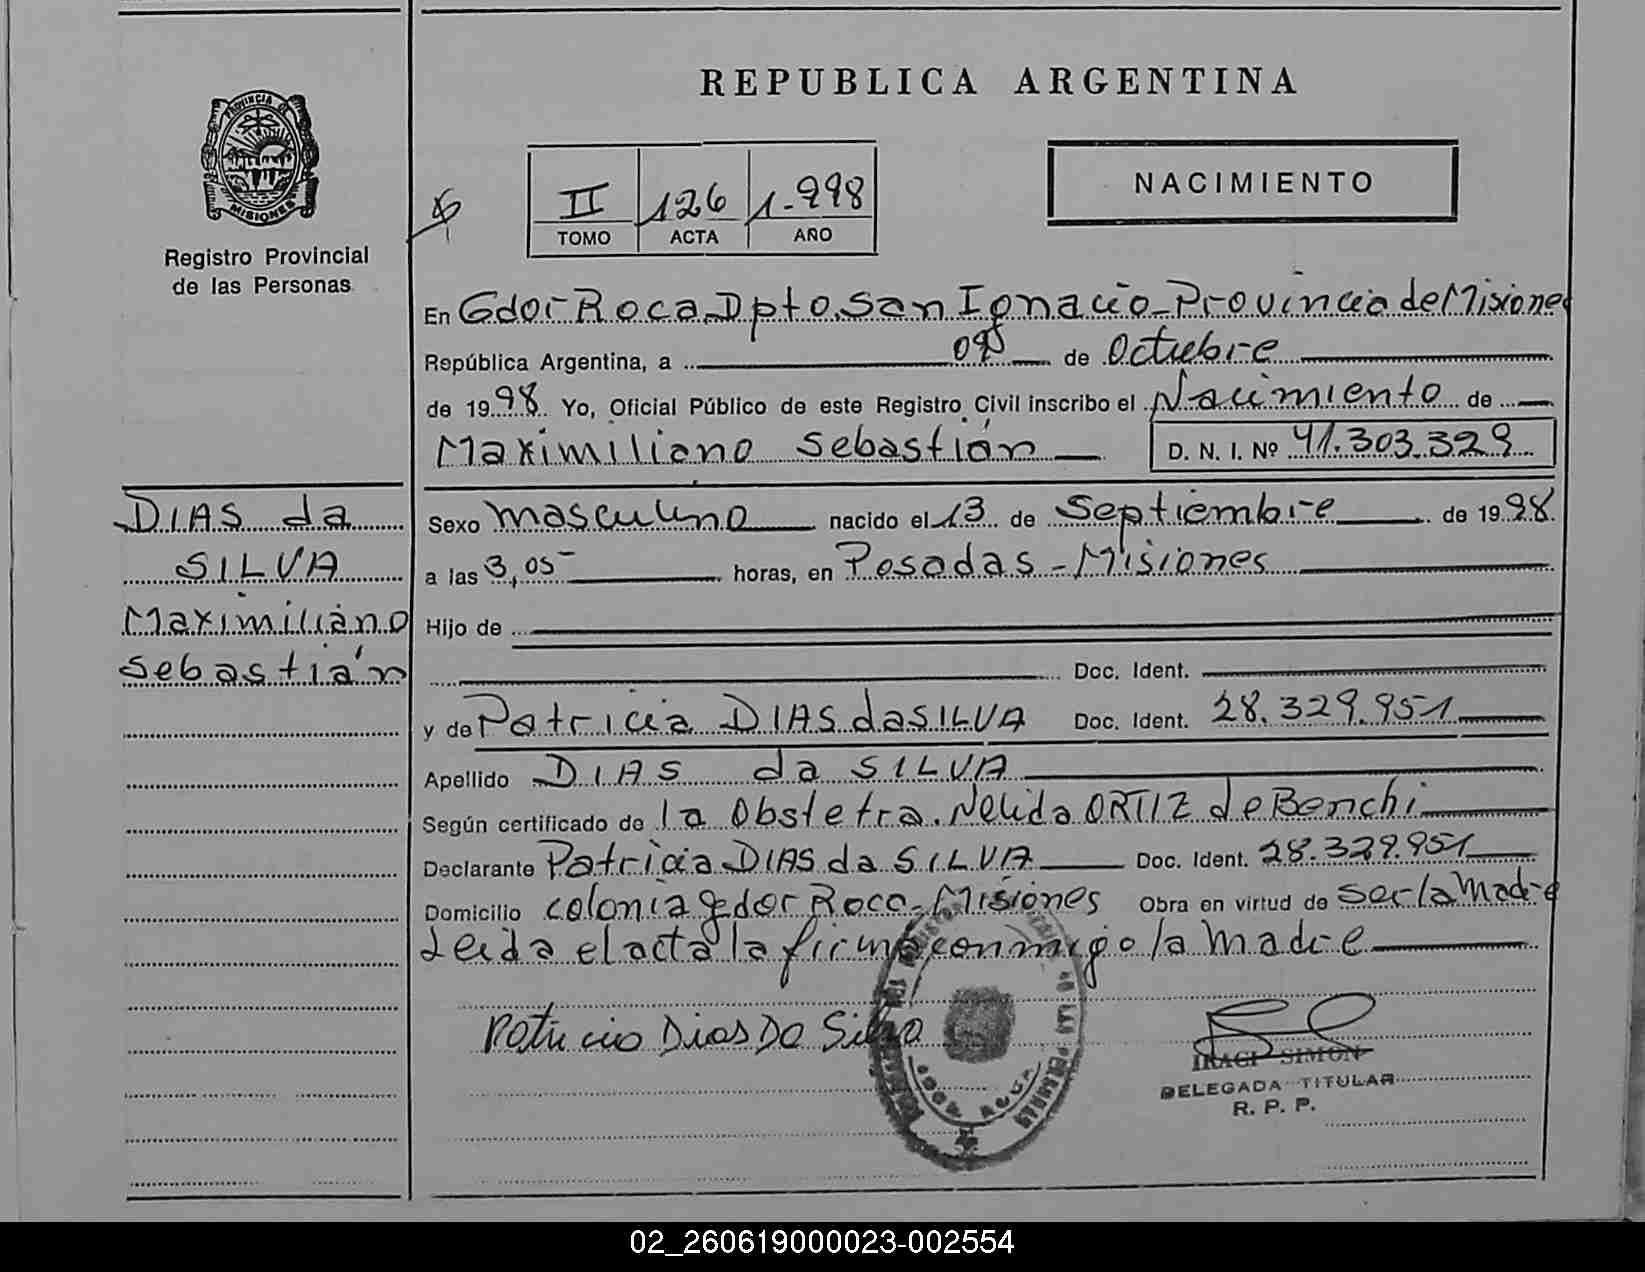 REPUBLICA ARGENTINA
PROVINCIA DE
MISIONES
Registro Provincial
de las Personas
II 126 1.998
TOMO ACTA AÑO
NACIMIENTO
En Gdor Roca Dpto. San Ignacio - Provincia de Misiones
República Argentina, a 09 de Octubre
de 1998 Yo, Oficial Público de este Registro Civil inscribo el Nacimiento de
Maximiliano Sebastián D. N. I. Nº 41.303.329
DIAS da
SILVA
Maximiliano
Sebastián
Sexo masculino nacido el 13 de Septiembre de 1998.
a las 3,05 horas, en Posadas - Misiones
Hijo de
Doc. Ident.
y de Patricia DIAS da SILVA Doc. Ident. 28.329.951
Apellido DIAS da SILVA
Según certificado de la Obstetra. Nelida ORTIZ de Benchi
Declarante Patricia DIAS da SILVA Doc. Ident. 28.329.951
Domicilio colonia gdor Roca - Misiones Obra en virtud de ser la Madre
Leida el acta la firma conmigo la Madre
Patricia Dias Da Silva
IRAGI SIMON
DELEGADA TITULAR
R. P. P.
02_260619000023-002554